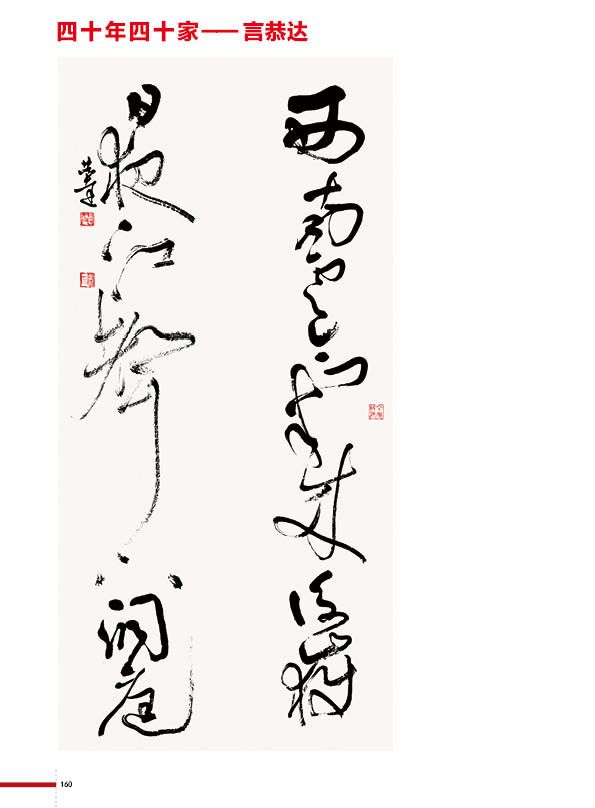 四十年四十家——言恭达
西南雲氣来衡嶽
日夜江聲下洞庭
恭達
160